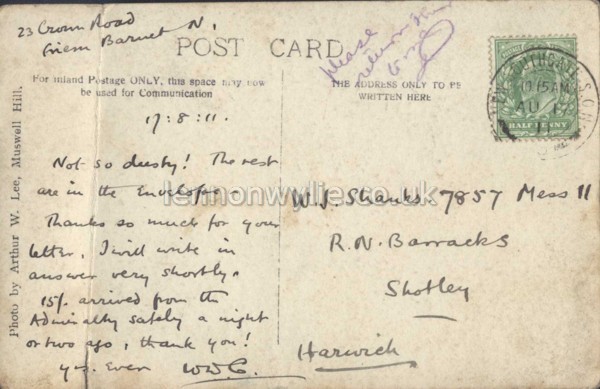 23 Crown Road
Friern Barnet N.
POST CARD
please
return this
to me
For Inland Postage ONLY, this space may now
be used for Communication
THE ADDRESS ONLY TO BE
WRITTEN HERE
10.15 AM
AU
HALFPENNY
17:8:11.
Not so dusty! The rest
are in the Envelope -
Thanks so much for your
letter, I will write in
answer very shortly.
15/. arrived from the
Admiralty safely a night
or two ago, thank you!
yrs. Ever WWC.
W.J. Shanks 7857 Mess 11
R.N. Barracks
Shotley
Harwich
Photo by Arthur W. Lee, Muswell Hill.
lennonwylie.co.uk